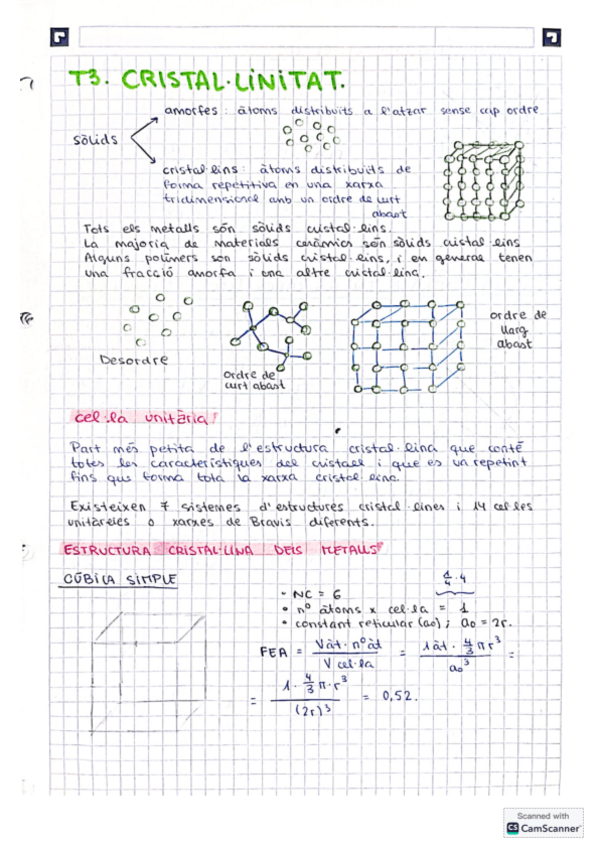 T3. CRISTAL·LINITAT.
amorfes: àtoms distribuïts a l'atzar sense cap ordre
sòlids
cristal·lins: àtoms distribuïts de
forma repetitiva en una xarxa
tridimensional amb un ordre de curt
abast
Tots els metalls són sòlids cristal·lins.
La majoria de materials ceràmics són sòlids cristal·lins
Alguns polímers son sòlids cristal·lins, i en general tenen
una fracció amorfa i una altre cristal·lina.
ordre de
llarg
abast
Desordre
ordre de
curt abast
cel·la unitària
Part més petita de l'estructura cristal·lina que conté
totes les característiques del cristall i que es va repetint
fins que forma tota la xarxa cristal·lina.
Existeixen 7 sistemes d'estructures cristal·lines i 14 cel·les
unitàreies o xarxes de Bravis diferents.
ESTRUCTURA CRISTAL·LINA DELS METALLS
CÚBICA SIMPLE
• NC = 6
• nº àtoms x cel·la = 1
• constant reticular (a₀); a₀ = 2r.
FEA = Vàt · nº àt / V cel·la = 1 àt · 4/3 πr³ / a₀³ =
= 1 · 4/3 π · r³ / (2r)³ = 0,52.
Scanned with
CS CamScanner